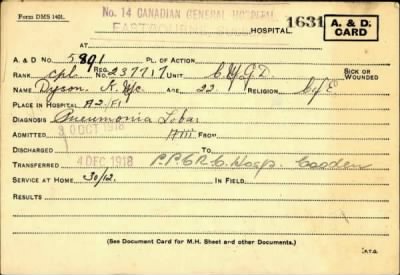 Form DMS 1401.
No. 14 CANADIAN GENERAL HOSPITAL
EASTBOURNE
HOSPITAL.
1631
A. & D. CARD
AT
A. & D No. 5891 PL. OF ACTION
RANK cpl. REG. No. 237717 UNIT SICK OR WOUNDED
NAME Dyson. AGE 22 RELIGION C of E
PLACE IN HOSPITAL A2/F1
DIAGNOSIS Pneumonia Lobar
30 OCT 1918
ADMITTED FROM
DISCHARGED TO
4 DEC 1918
TRANSFERRED P.P.C.R.C. Hosp. Cooden
SERVICE AT HOME 30/12. IN FIELD
RESULTS
(See Document Card for M.H. Sheet and other Documents.)
P.T.O.